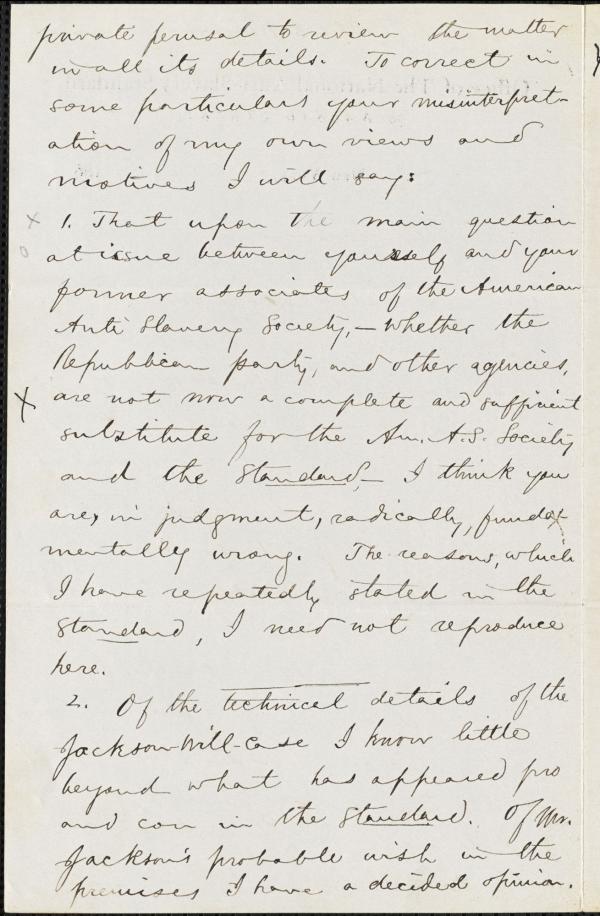 private perusal to review the matter
in all its details. To correct in
some particulars your misinterpret-
ation of my own views and
motives I will say:
1. That upon the main question
at issue between yourself and your
former associates of the American
Anti Slavery Society, — whether the
Republican party, and other agencies,
are not now a complete and sufficient
substitute for the Am. A. S. Society
and the Standard, — I think you
are, in judgment, radically, funda-
mentally wrong. The reasons, which
I have repeatedly stated in the
Standard, I need not reproduce
here.
2. Of the technical details of the
Jackson-Will-Case I know little
beyond what has appeared pro
and con in the Standard. Of Mr.
Jackson's probable wish in the
premises I have a decided opinion.